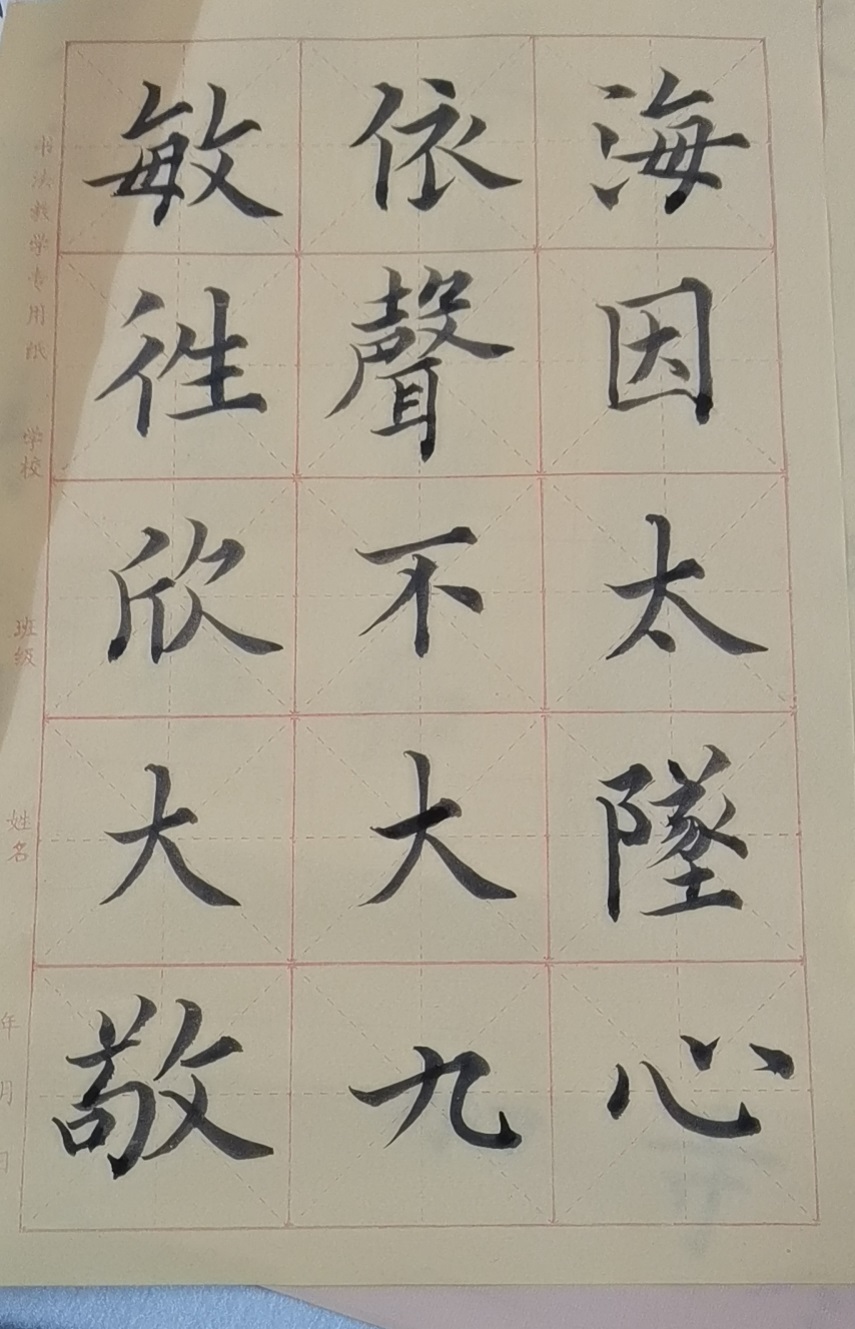 海因太墜心
依聲不大九
敏徃欣大敬
书法教学专用纸 学校 班级 姓名 年 月 日